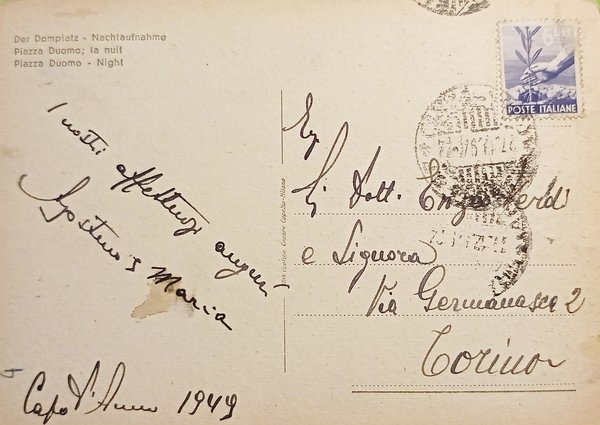 Der Domplatz - Nachtaufnahme
Piazza Duomo; la nuit
Piazza Duomo - Night
POSTE ITALIANE
I nostri affettuosi auguri
Agostino e Maria
Capo d'Anno 1949
Eg
Dott. Enzo Verdi
e Signora
Via Germanasca 2
Torino